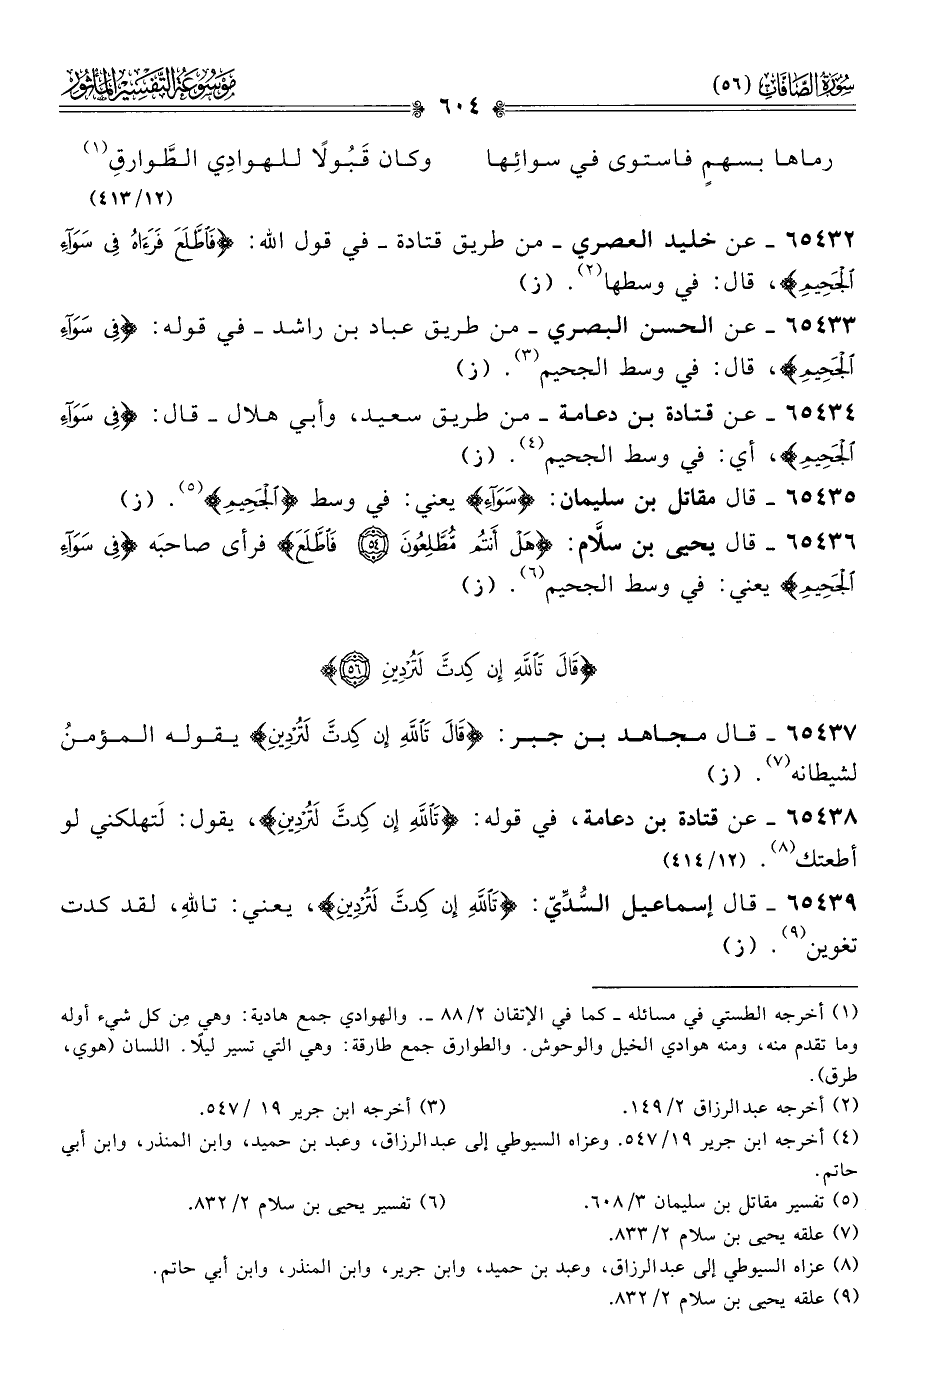 سُورَةُ الصَّافَّاتِ (٥٦)
٦٠٤
مَوْسُوعَةُ التَّفْسِيرِ المَأْثُورِ
رماها بسهمٍ فاستوى في سوائِها وكان قَبُولًا للهوادِي الطَّوارقِ(١)
(٤١٣/١٢)
٦٥٤٣٢ ـ عن خليد العصري ـ من طريق قتادة ـ في قول الله: ﴿فَٱطَّلَعَ فَرَءَاهُ فِى سَوَآءِ
ٱلْجَحِيمِ﴾، قال: في وسطها(٢). (ز)
٦٥٤٣٣ ـ عن الحسن البصري ـ من طريق عباد بن راشد ـ في قوله: ﴿فِى سَوَآءِ
ٱلْجَحِيمِ﴾، قال: في وسط الجحيم(٣). (ز)
٦٥٤٣٤ ـ عن قتادة بن دعامة ـ من طريق سعيد، وأبي هلال ـ قال: ﴿فِى سَوَآءِ
ٱلْجَحِيمِ﴾، أي: في وسط الجحيم(٤). (ز)
٦٥٤٣٥ ـ قال مقاتل بن سليمان: ﴿سَوَآءِ﴾ يعني: في وسط ﴿ٱلْجَحِيمِ﴾(٥). (ز)
٦٥٤٣٦ ـ قال يحيى بن سلَّام: ﴿هَلْ أَنتُم مُّطَّلِعُونَ ٥٤ فَٱطَّلَعَ﴾ فرأى صاحبَه ﴿فِى سَوَآءِ
ٱلْجَحِيمِ﴾ يعني: في وسط الجحيم(٦). (ز)
﴿قَالَ تَٱللَّهِ إِن كِدتَّ لَتُرْدِينِ ٥٦﴾
٦٥٤٣٧ ـ قال مجاهد بن جبر: ﴿قَالَ تَٱللَّهِ إِن كِدتَّ لَتُرْدِينِ﴾ يقوله المؤمنُ
لشيطانه(٧). (ز)
٦٥٤٣٨ ـ عن قتادة بن دعامة، في قوله: ﴿تَٱللَّهِ إِن كِدتَّ لَتُرْدِينِ﴾، يقول: لَتهلكني لو
أطعتك(٨). (٤١٤/١٢)
٦٥٤٣٩ ـ قال إسماعيل السُّدِّيّ: ﴿تَٱللَّهِ إِن كِدتَّ لَتُرْدِينِ﴾، يعني: تاللهِ، لقد كدت
تغوين(٩). (ز)
(١) أخرجه الطستي في مسائله ـ كما في الإتقان ٨٨/٢ ـ. والهوادي جمع هادية: وهي مِن كل شيء أوله
وما تقدم منه، ومنه هوادي الخيل والوحوش. والطوارق جمع طارقة: وهي التي تسير ليلًا. اللسان (هوي،
طرق).
(٢) أخرجه عبدالرزاق ١٤٩/٢. (٣) أخرجه ابن جرير ١٩/ ٥٤٧.
(٤) أخرجه ابن جرير ٥٤٧/١٩. وعزاه السيوطي إلى عبدالرزاق، وعبد بن حميد، وابن المنذر، وابن أبي
حاتم.
(٥) تفسير مقاتل بن سليمان ٦٠٨/٣. (٦) تفسير يحيى بن سلام ٨٣٢/٢.
(٧) علقه يحيى بن سلام ٨٣٣/٢.
(٨) عزاه السيوطي إلى عبدالرزاق، وعبد بن حميد، وابن جرير، وابن المنذر، وابن أبي حاتم.
(٩) علقه يحيى بن سلام ٨٣٢/٢.